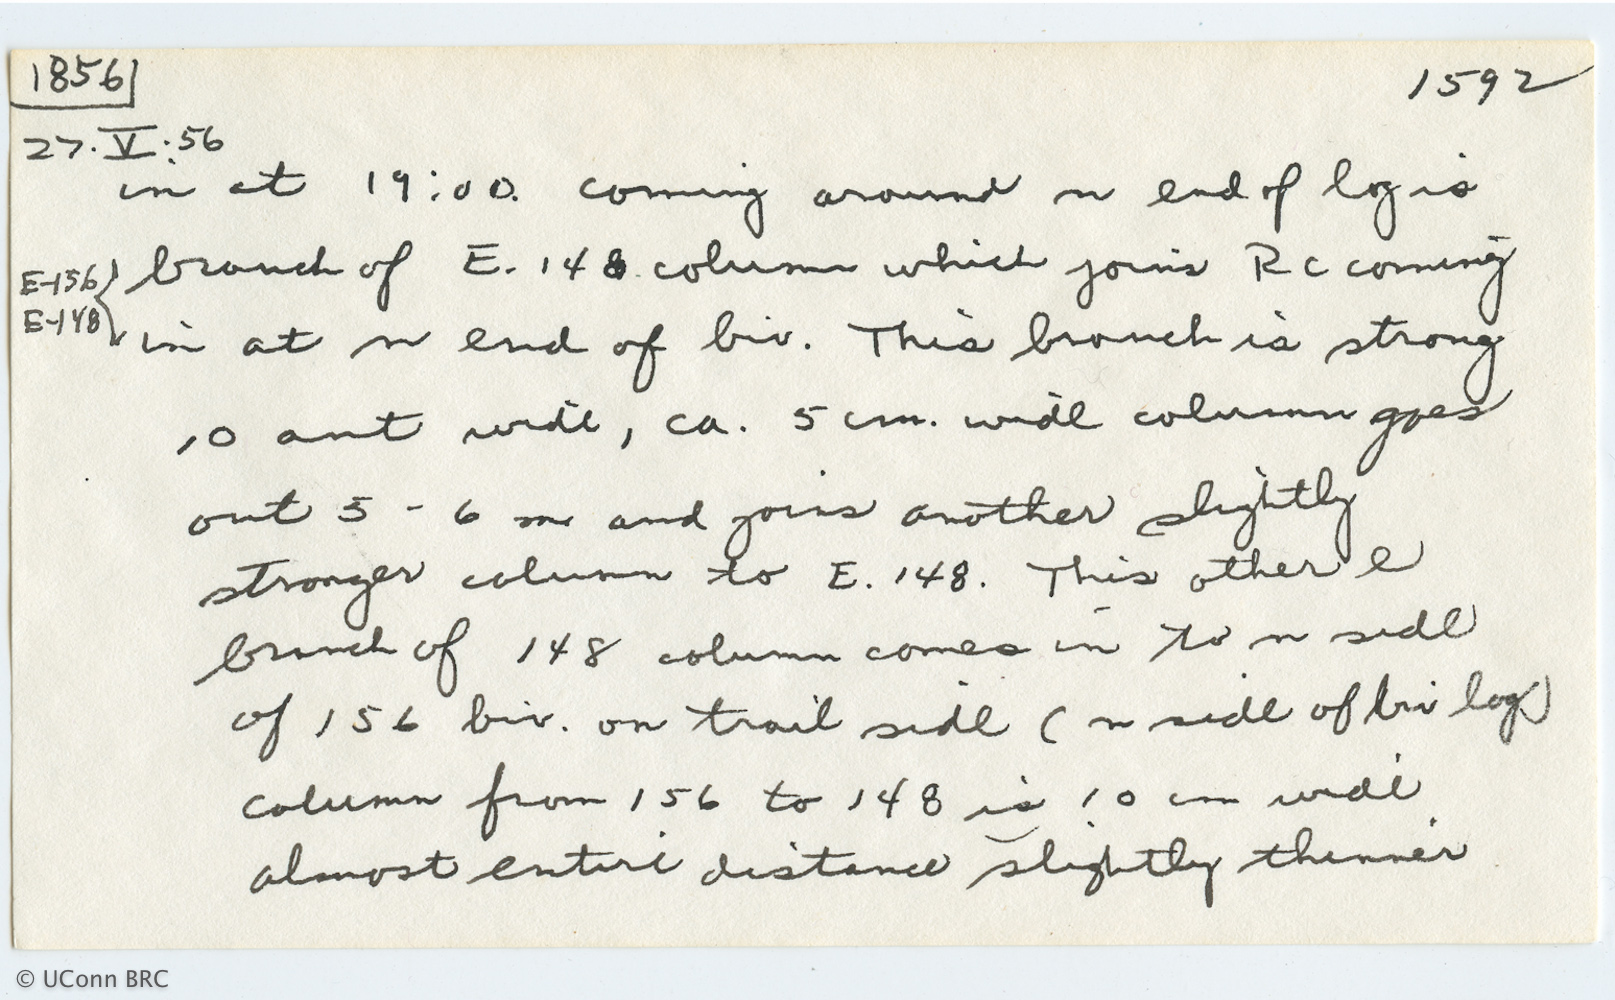 1856
1592
27.V.56
in at 19:00. coming around n end of log is
E-156
branch of E. 148 column which joins RC coming
E-148
in at n end of biv. This branch is strong
10 ant wide, ca. 5 cm. wide column goes
out 5 - 6 m and joins another slightly
stronger column to E. 148. This other e
branch of 148 column comes in to n side
of 156 biv. on trail side (n side of biv log)
column from 156 to 148 is 10 cm wide
almost entire distance slightly thinner
© UConn BRC